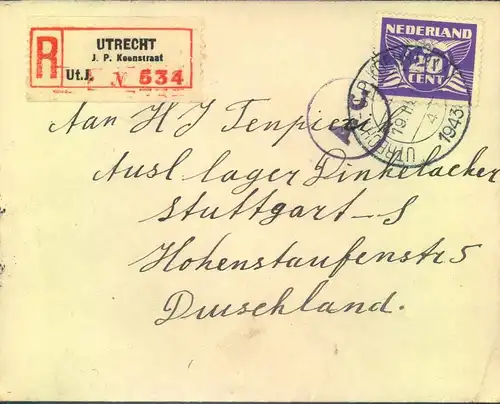 R
UTRECHT
J. P. Koenstraat
Ut.J. N 534
NEDERLAND
20
CENT
UTRECHT
19 1943
Aan HJ Tenpierik
Ausl lager Dinkelacker
Stuttgart-S
Hohenstaufenstr 5
Duischland.